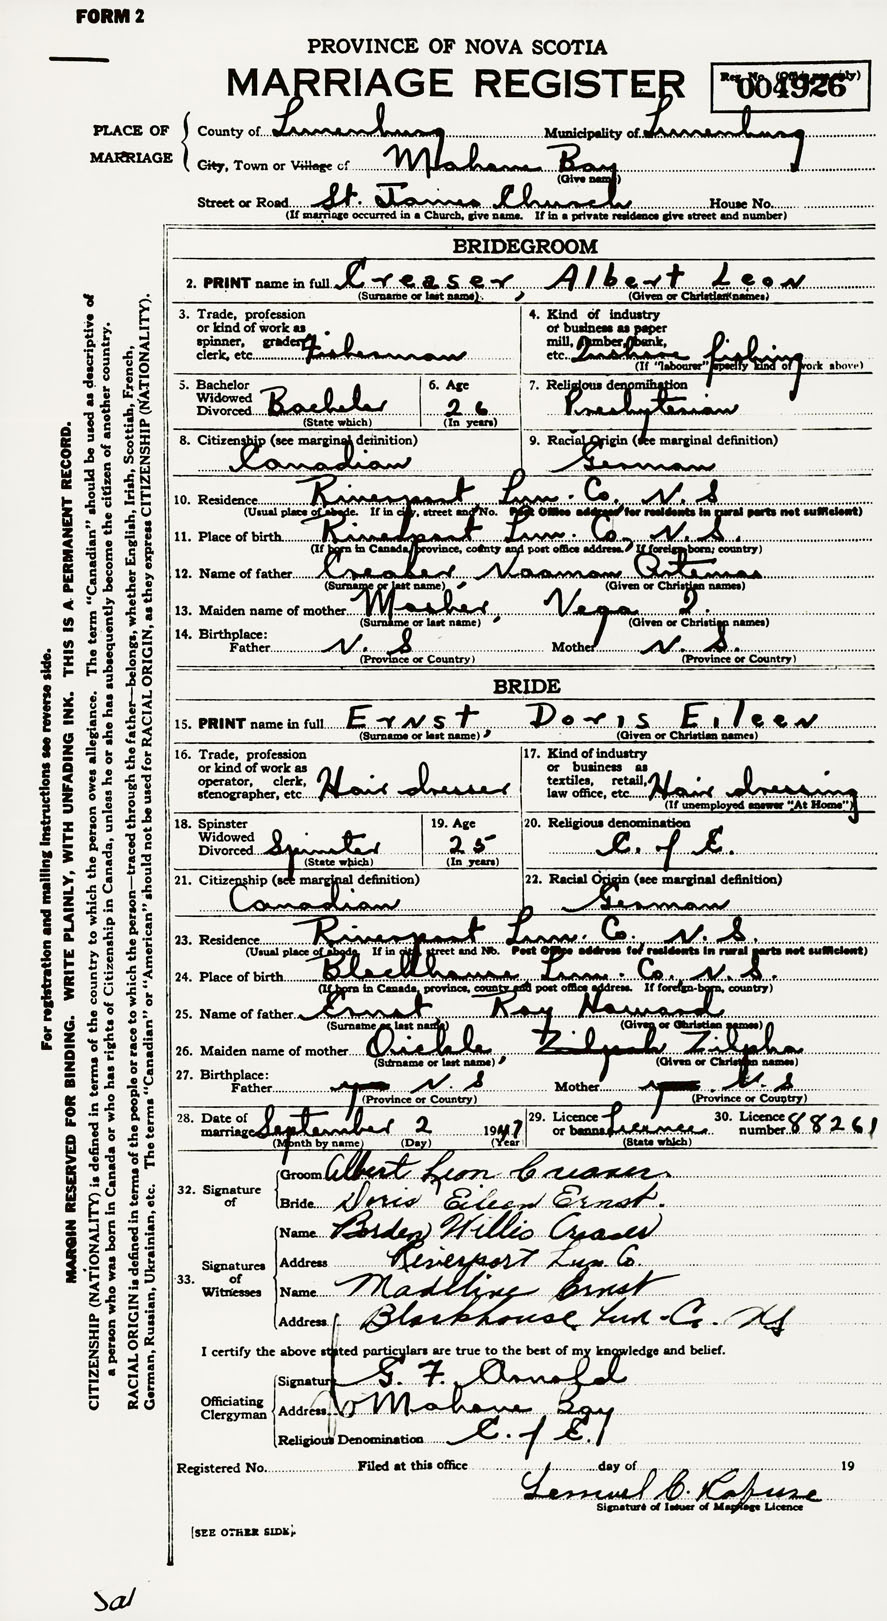 FORM 2
PROVINCE OF NOVA SCOTIA
MARRIAGE REGISTER
Reg. No. (Office use only)
004926
PLACE OF MARRIAGE
County of Lunenburg Municipality of Lunenburg
City, Town or Village of Mahone Bay
(Give name)
Street or Road St. James Church House No.
(If marriage occurred in a Church, give name. If in a private residence give street and number)
BRIDEGROOM
2. PRINT name in full Creaser, Albert Leon
(Surname or last name) (Given or Christian names)
3. Trade, profession or kind of work as spinner, grader, clerk, etc. Fisherman
4. Kind of industry or business as paper mill, lumber, bank, etc. Inshore fishing
(If "labourer" specify kind of work above)
5. Bachelor Widowed Divorced Bachelor
(State which)
6. Age 26
(In years)
7. Religious denomination Presbyterian
8. Citizenship (see marginal definition) Canadian
9. Racial Origin (see marginal definition) German
10. Residence Riverport Lun. Co. N. S
(Usual place of abode. If in city, street and No. Post Office address for residents in rural parts not sufficient)
11. Place of birth Riverport Lun. Co. N. S.
(If born in Canada, province, county and post office address. If foreign born; country)
12. Name of father Creaser, Naaman Artemas
(Surname or last name) (Given or Christian names)
13. Maiden name of mother Mosher, Vega I.
(Surname or last name) (Given or Christian names)
14. Birthplace:
Father N. S Mother N. S.
(Province or Country) (Province or Country)
BRIDE
15. PRINT name in full Ernst, Doris Eileen
(Surname or last name) (Given or Christian names)
16. Trade, profession or kind of work as operator, clerk, stenographer, etc Hair dresser
17. Kind of industry or business as textiles, retail, law office, etc. Hair dressing
(If unemployed answer "At Home")
18. Spinster Widowed Divorced Spinster
(State which)
19. Age 25
(In years)
20. Religious denomination C. of E.
21. Citizenship (see marginal definition) Canadian
22. Racial Origin (see marginal definition) German
23. Residence Riverport Lun. Co. N. S
(Usual place of abode. If in city, street and No. Post Office address for residents in rural parts not sufficient)
24. Place of birth Blockhouse Lun. Co. N. S.
(If born in Canada, province, county and post office address. If foreign-born, country)
25. Name of father Ernst Roy Howard
(Surname or last name) (Given or Christian names)
26. Maiden name of mother Oickle, Zilpha
(Surname or last name) (Given or Christian names)
27. Birthplace:
Father N. S Mother N. S
(Province or Country) (Province or Country)
28. Date of marriage September 2 1947
(Month by name) (Day) (Year)
29. Licence or banns License
(State which)
30. Licence number 88261
32. Signature of
Groom Albert Leon Creaser
Bride Doris Eileen Ernst.
33. Signatures of Witnesses
Name Borden Willis Creaser
Address Riverport Lun. Co.
Name Madeline Ernst
Address Blockhouse Lun. Co. NS
I certify the above stated particulars are true to the best of my knowledge and belief.
Officiating Clergyman
Signature G. F. Arnold
Address Mahone Bay
Religious Denomination C. of E.
Registered No. Filed at this office day of 19
Lemuel C.
Signature of Issuer of Marriage Licence
[SEE OTHER SIDE].
For registration and mailing instructions see reverse side.
MARGIN RESERVED FOR BINDING. WRITE PLAINLY, WITH UNFADING INK. THIS IS A PERMANENT RECORD.
CITIZENSHIP (NATIONALITY) is defined in terms of the country to which the person owes allegiance. The term "Canadian" should be used as descriptive of
a person who was born in Canada or who has rights of Citizenship in Canada, unless he or she has subsequently become the citizen of another country.
RACIAL ORIGIN is defined in terms of the people or race to which the person—traced through the father—belongs, whether English, Irish, Scottish, French,
German, Russian, Ukrainian, etc. The terms "Canadian" or "American" should not be used for RACIAL ORIGIN, as they express CITIZENSHIP (NATIONALITY).